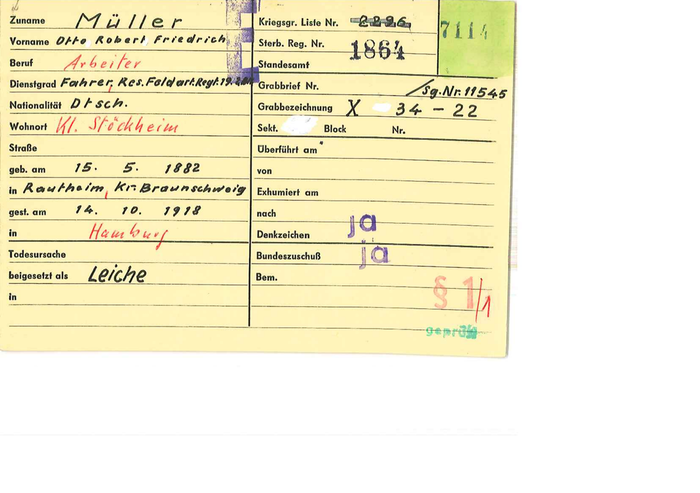 Zuname Müller
Vorname Otto Robert Friedrich
Beruf Arbeiter
Dienstgrad Fahrer, Res. Feldart. Regt. 19.
Nationalität Dtsch.
Wohnort Kl. Stöckheim
Straße
geb. am 15. 5. 1882
in Rautheim, Kr. Braunschweig
gest. am 14. 10. 1918
in Hamburg
Todesursache
beigesetzt als Leiche
in
Kriegsgr. Liste Nr. 2296
7114
Sterb. Reg. Nr. 1864
Standesamt
Grabbrief Nr. /Sg. Nr. 11545
Grabbezeichnung X 34 - 22
Sekt. Block Nr.
Überführt am
von
Exhumiert am
nach
Denkzeichen ja
Bundeszuschuß ja
Bem.
§ 1/1
geprüft